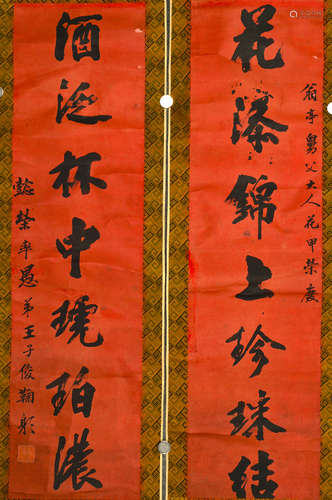 翁亭舅父大人花甲榮慶
花添錦上珍珠結
酒泛杯中琥珀濃
懿榮率愚弟王子俊鞠躬